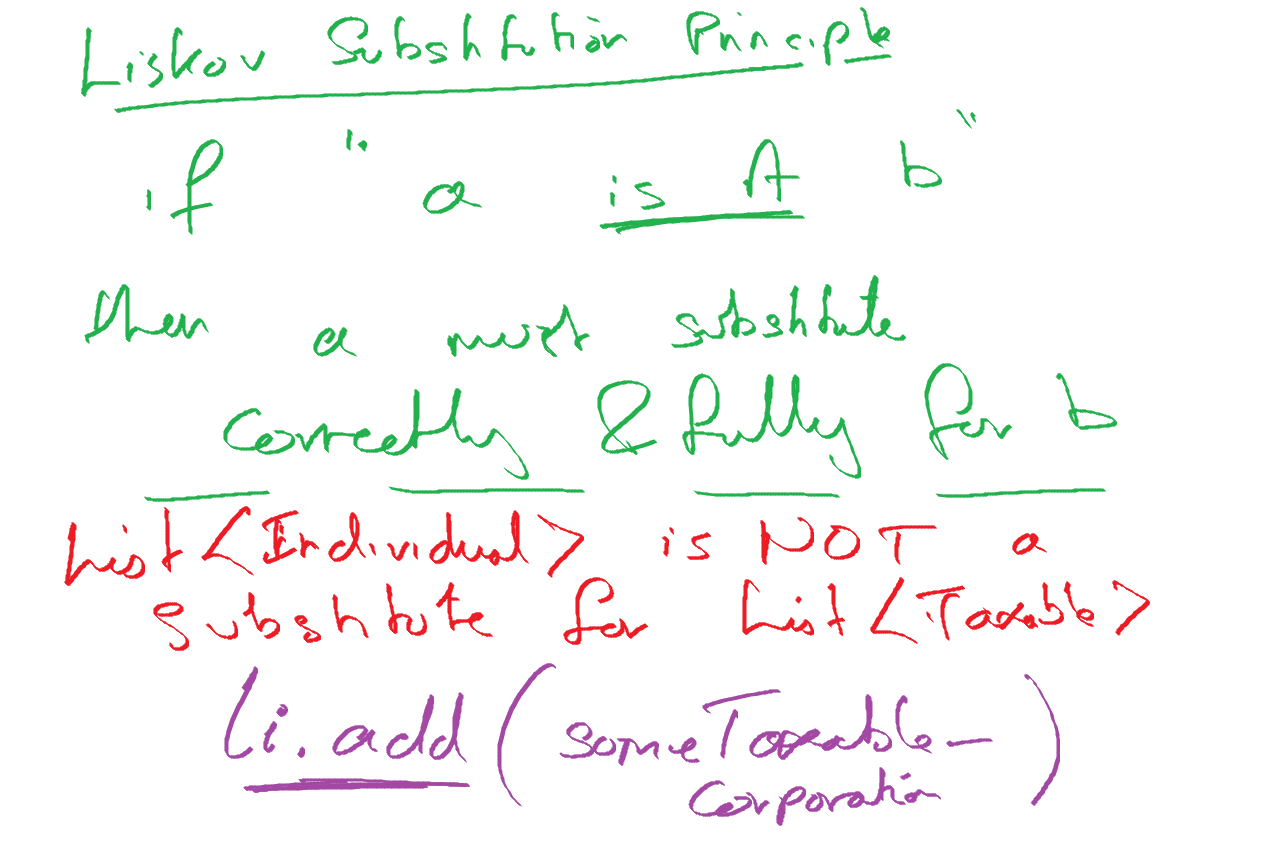 Liskov Substitution Principle
if "a is A b"
then a must substitute
correctly & fully for b
List<Individual> is NOT a
substitute for List<Taxable>
li.add(someTaxable-
Corporation)